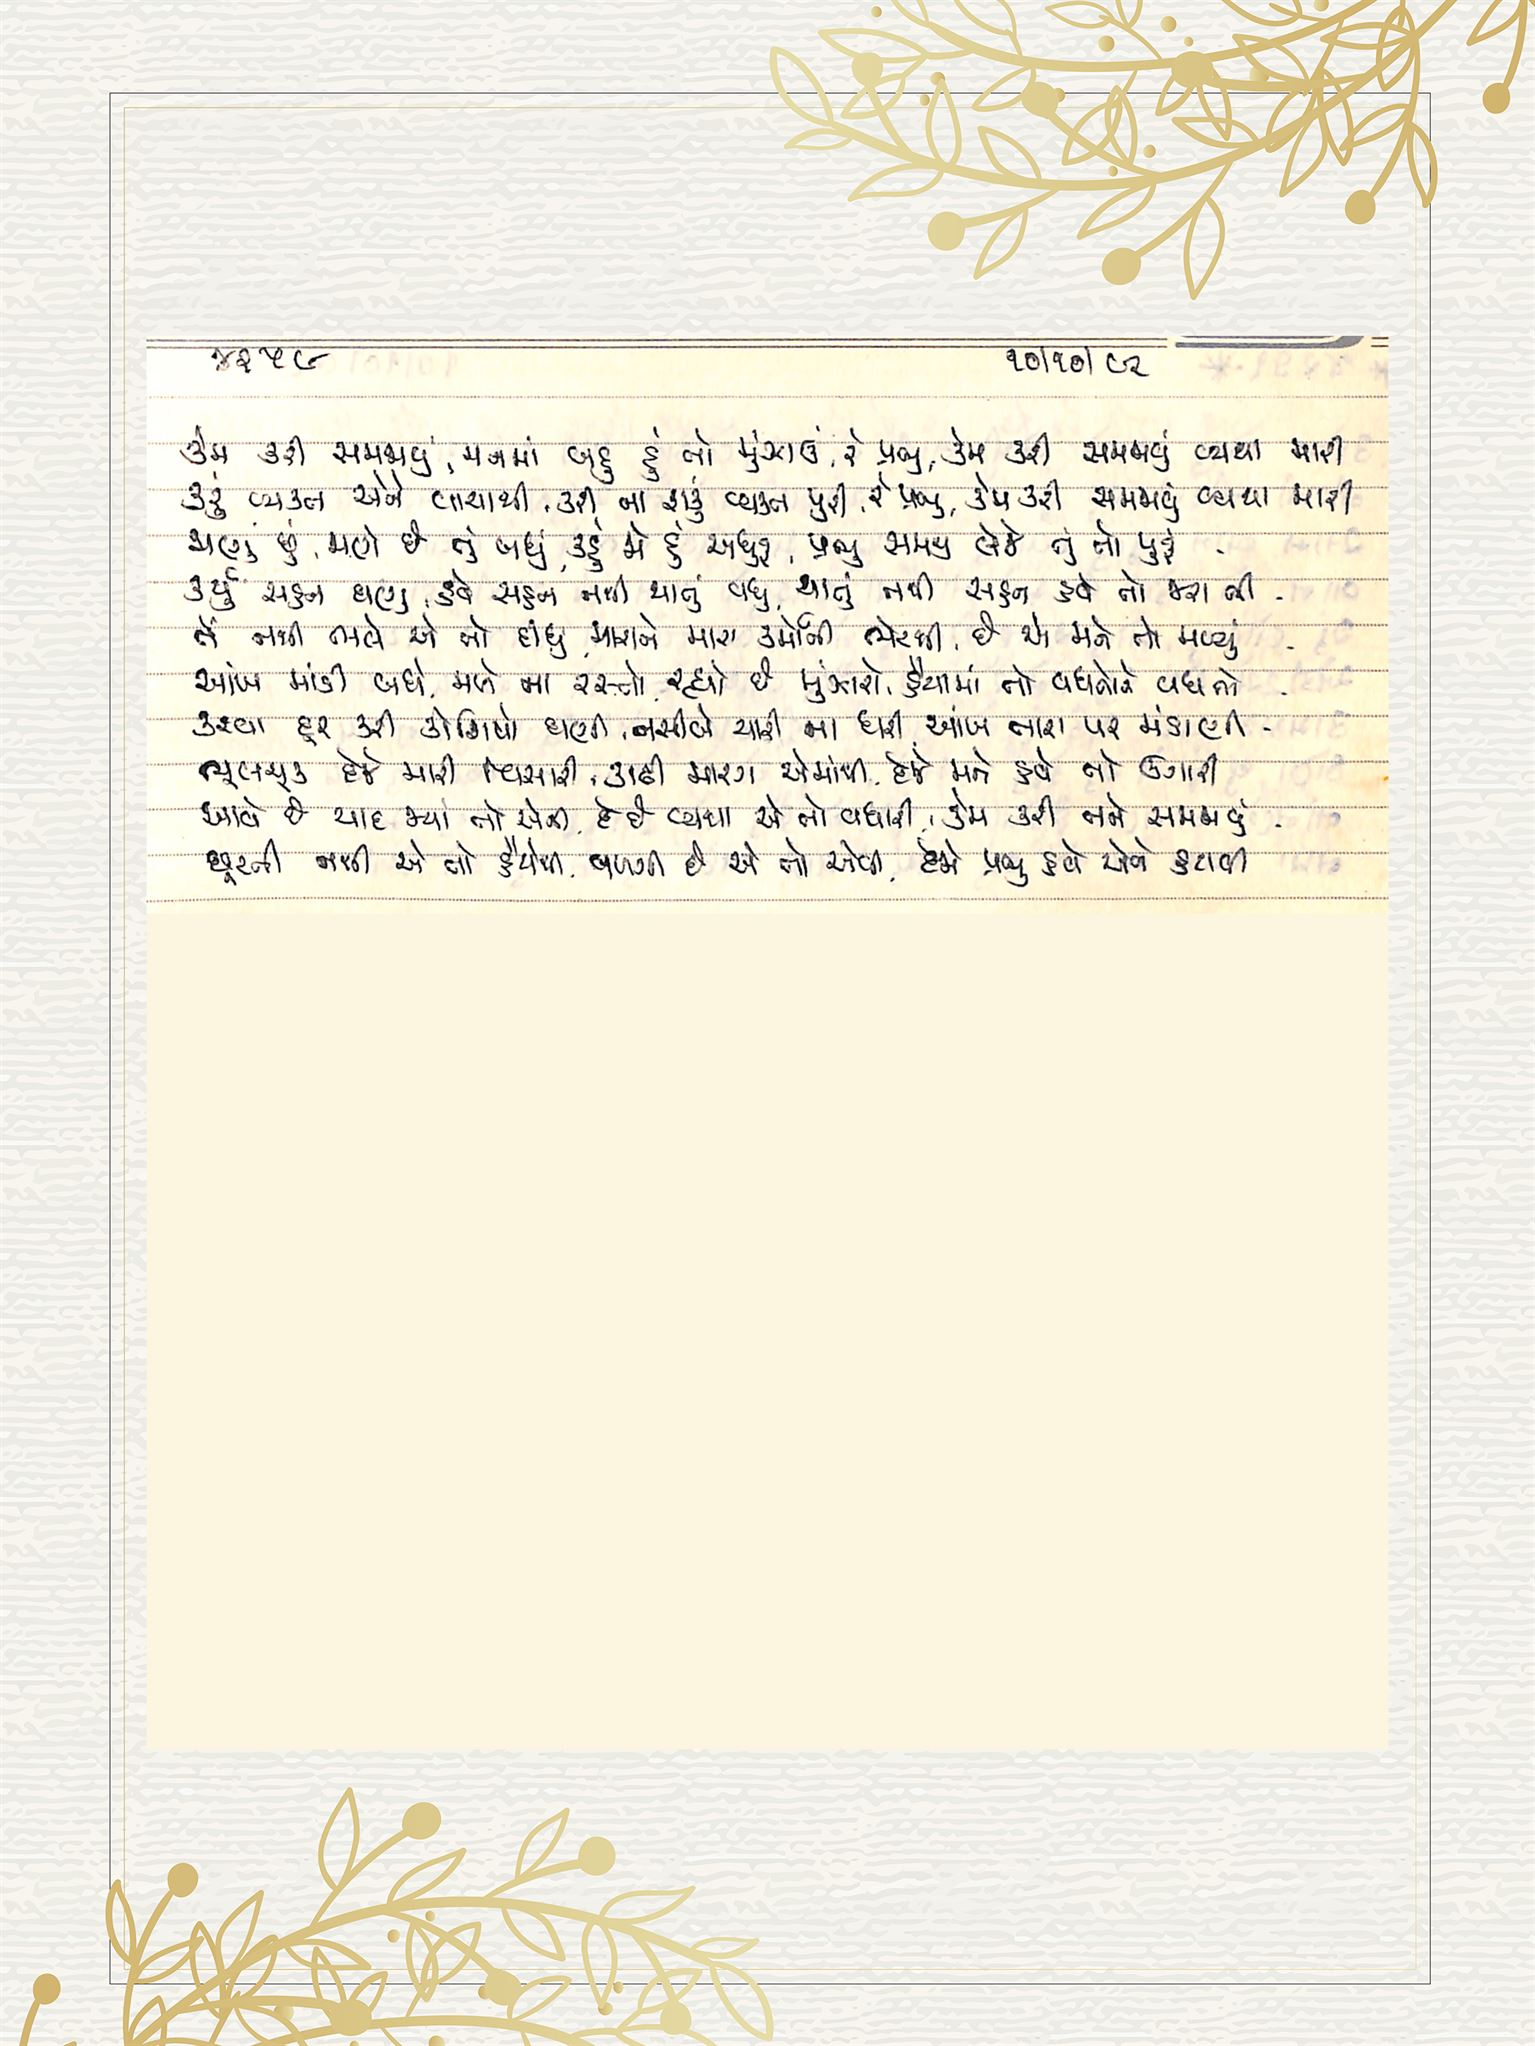 ૪૨૫૯ ૧૦/૧૦/૯૨
કેમ કરી સમજાવું, મનમાં બહુ હું તો મુંઝાઉં, રે પ્રભુ, કેમ કરી સમજાવું વ્યથા મારી
કરું વ્યક્ત એને વાચાથી, કરી ના શકું વ્યક્ત પુરી, રે પ્રભુ, કેમ કરી સમજાવું વ્યથા મારી
જાણું છું, જાણે છે તું બધું, કહું જે હું અધુરૂં, પ્રભુ સમજી લેજે તું તો પુરૂં
કર્યું સહન ઘણું, હવે સહન નથી થાતું વધુ, થાતું નથી સહન હવે તો જરા બી
તેં નથી ભલે એ તો દીધું, મારાને મારા કર્મોની ભેટથી, છે એ મને તો મળ્યું
આંખ માંડી બધે, મળે ના રસ્તો, રહ્યો છે મુંઝારો, હૈયામાં તો વધતોને વધતો
કરવા દૂર કરી કોશિષો ઘણી, નસીબે યારી ના ધરી, આંખ તારા પર મંડાણી
ભૂલચૂક દેજે મારી વિસારી, કાઢી મારગ એમાંથી, દેજે મને હવે તો ઉગારી
આવે છે યાદ જ્યાં તો એની, દે છે વ્યથા એ તો વધારી, કેમ કરી તને સમજાવું
છૂટતી નથી એ તો હૈયેથી, વળગી છે એ તો એવી, દેજે પ્રભુ હવે એને હટાવી